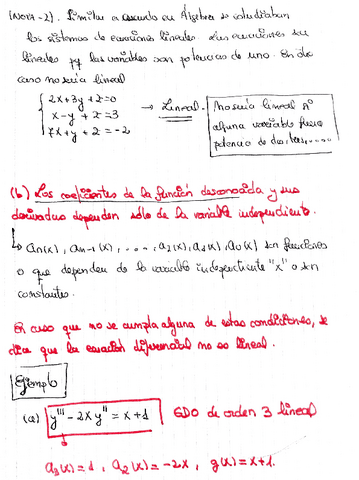 (NOTA-2). Similar a cuando en Álgebra se estudiaban
los sistemas de ecuaciones lineales. Las ecuaciones son
lineales pq las variables son potencias de uno. En otro
caso no sería lineal
2x+3y+z=0
x-y+z=3
7x+y+z=-2
→ Lineal.
No sería lineal si
alguna variable fuese
potencia de dos, tres,.....
(b) Los coeficientes de la función desconocida y sus
derivadas dependen sólo de la variable independiente.
↳ an(x), an-1(x), ...., a2(x), a1(x), a0(x) son funciones
o que dependen de la variable independiente "x" o son
constantes.
En caso que no se cumpla alguna de estas condiciones, se
dice que la ecuación diferencial no es lineal.
Ejemplo
(a) y''' - 2xy'' = x+1 EDO de orden 3 lineal
a3(x)=1, a2(x)=-2x, g(x)=x+1.